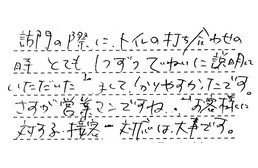 訪問の際に、トイレの打ち合わせの
時 とても 1つずつていねいに説明
いただいた して、わかりやすかったです。
さすが営業マンですね。お客様に
対する接客 対応は大事です。